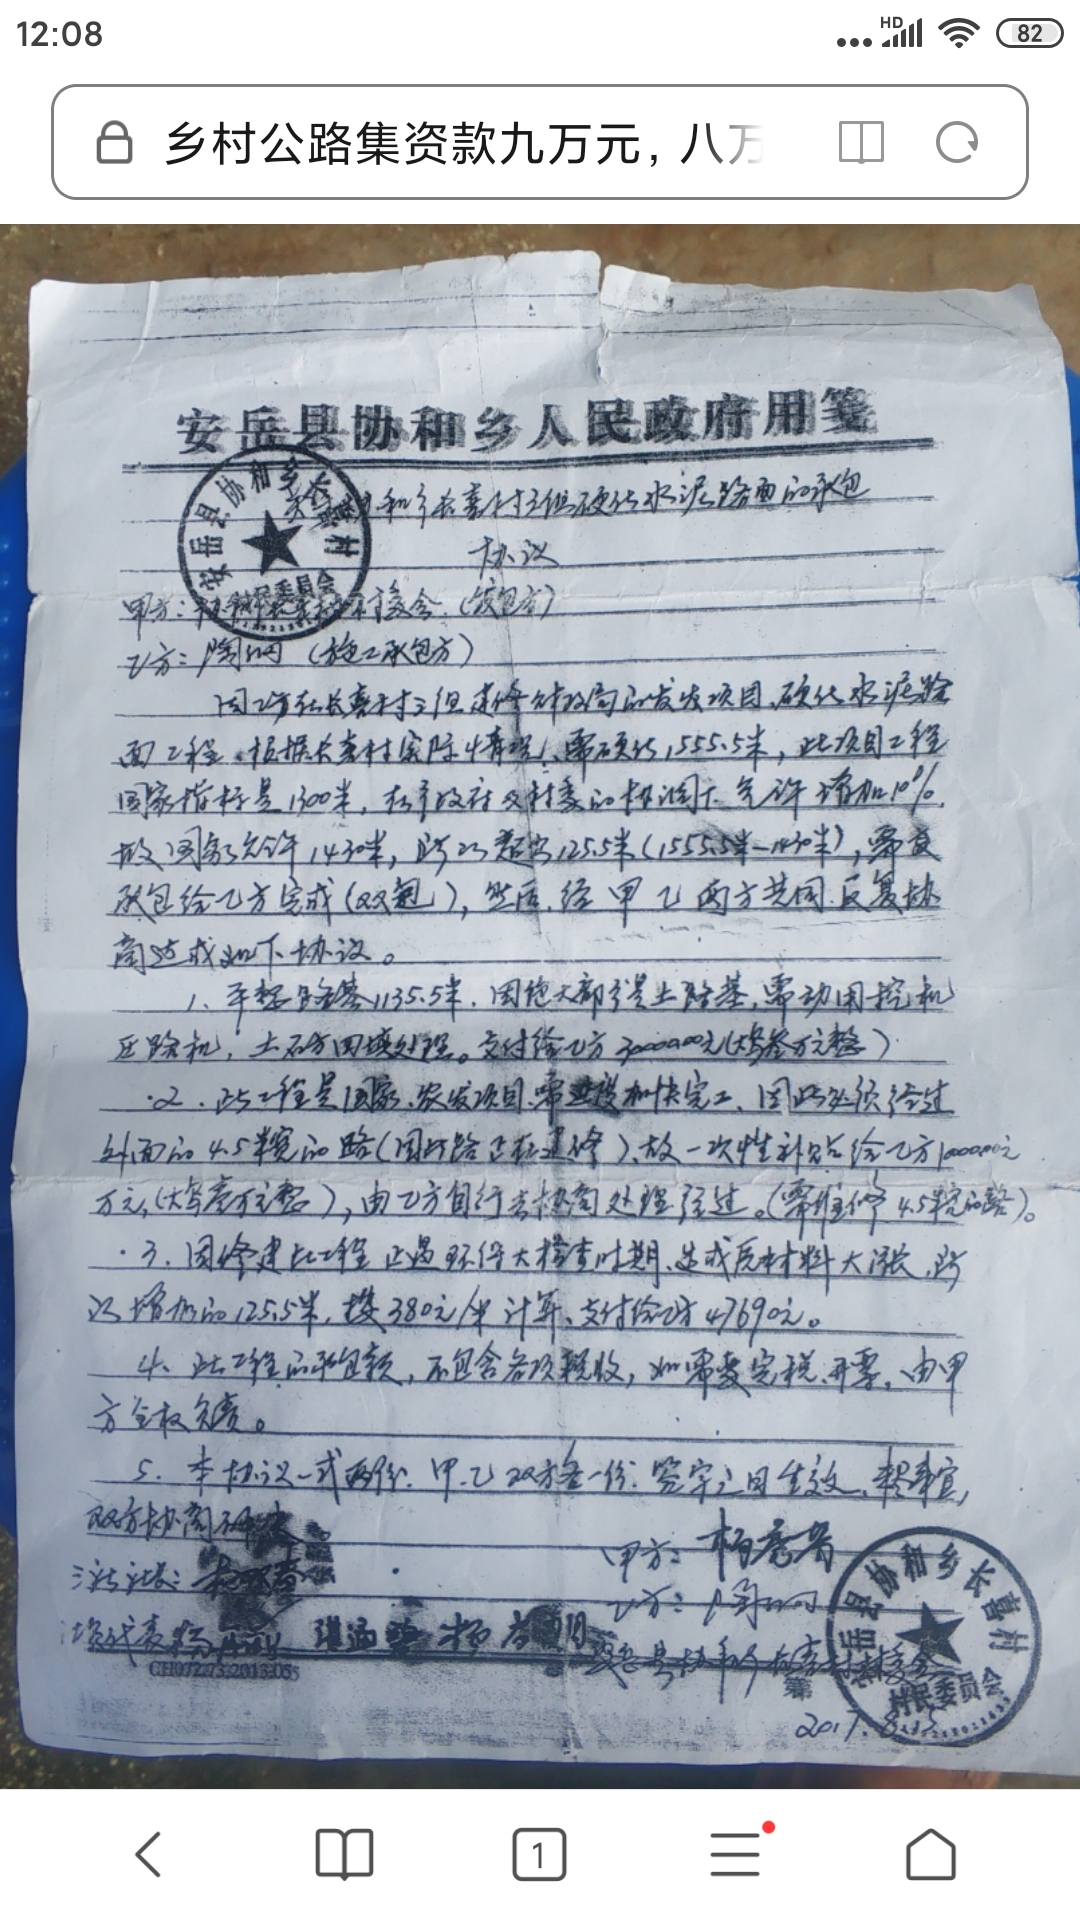 12:08
HD
82
乡村公路集资款九万元，八万
安岳县协和乡人民政府用笺
安岳县协和乡长喜村
村民委员会
关 和乡长喜村三组硬化水泥路面的承包
协议
甲方： 村委会（发包方）
乙方：陶 （施工承包方）
因乙方在长喜村三组建修财政局的农发项目、硬化水泥路
面工程。根据长喜村实际情况，需硬化1555.5米，此项目工程
国家指标是1300米，在乡政府及村委的协调下，允许增加10%，
故国家允许1430米，所以超出125.5米（1555.5米-1430米），需
承包给乙方完成（双包），然后，经甲乙两方共同反复协
商达成如下协议。
1、平整路基1135.5米，因绝大部分是土路基，需动用挖机
压路机，土石方回填处理。交付给乙方30000.00元（大写叁万元整）
2、此工程是国家农发项目，需 加快完工，因此必须经过
外面的4.5米宽的路（因此路正在建修），故一次性补贴给乙方10000.00元
万元，（大写壹万元整），由乙方自行去协商处理经过。（需维修4.5米宽的路）。
3、因修建此工程正遇环保大检查时期，造成原材料大涨，所
以增加的125.5米，按380元/米计算、支付给乙方47690元。
4、此工程的承包款，不包含各项税收，如需要完税、开票，由甲
方全权负责。
5、本协议一式两份，甲、乙双方各一份，签字之日生效、 事宜，
双方协商
甲方：杨
三社社长：
乙方：陶
CH072.73.2013.055
安岳县协和乡长喜村村委会
安岳县协和乡长喜村
村民委员会
2017.8.
1